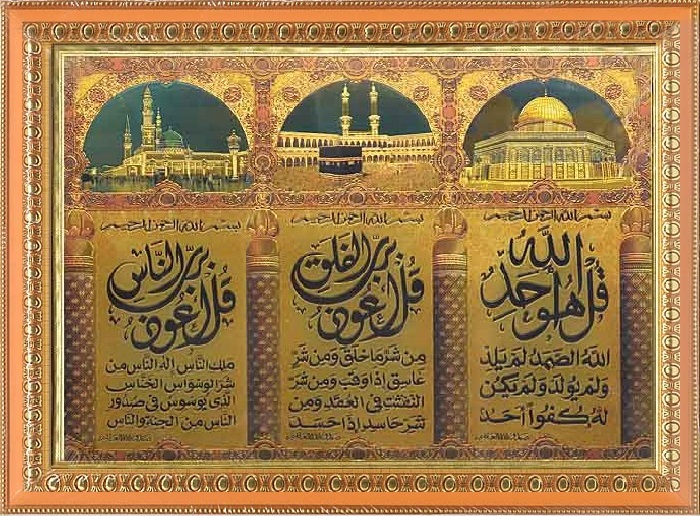 بسم الله الرحمن الرحيم
قل هو الله أحد
الله الصمد لم يلد
ولم يولد ولم يكن
له كفوا أحد
بسم الله الرحمن الرحيم
قل أعوذ برب الفلق
من شر ما خلق ومن شر
غاسق إذا وقب ومن شر
النفثت في العقد ومن
شر حاسد إذا حسد
بسم الله الرحمن الرحيم
قل أعوذ برب الناس
ملك الناس إله الناس من
شر الوسواس الخناس
الذي يوسوس في صدور
الناس من الجنة والناس